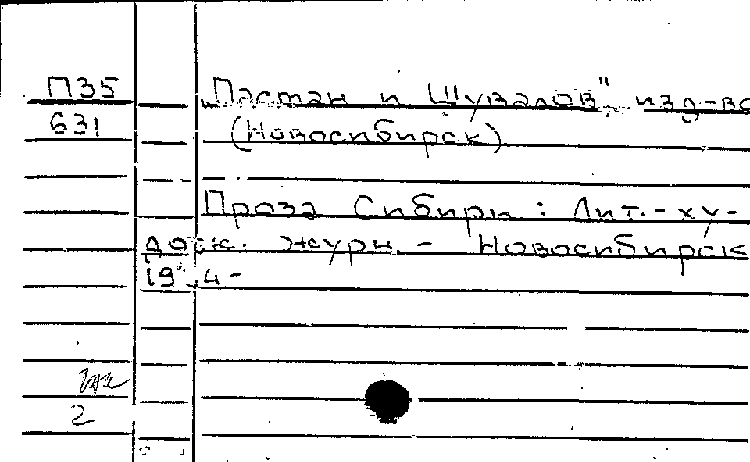 П35
631
"Пасман и Шувалов", изд-во
(Новосибирск)
Проза Сибири: Лит.-ху-
дож. журн. - Новосибирск
19 4-
2